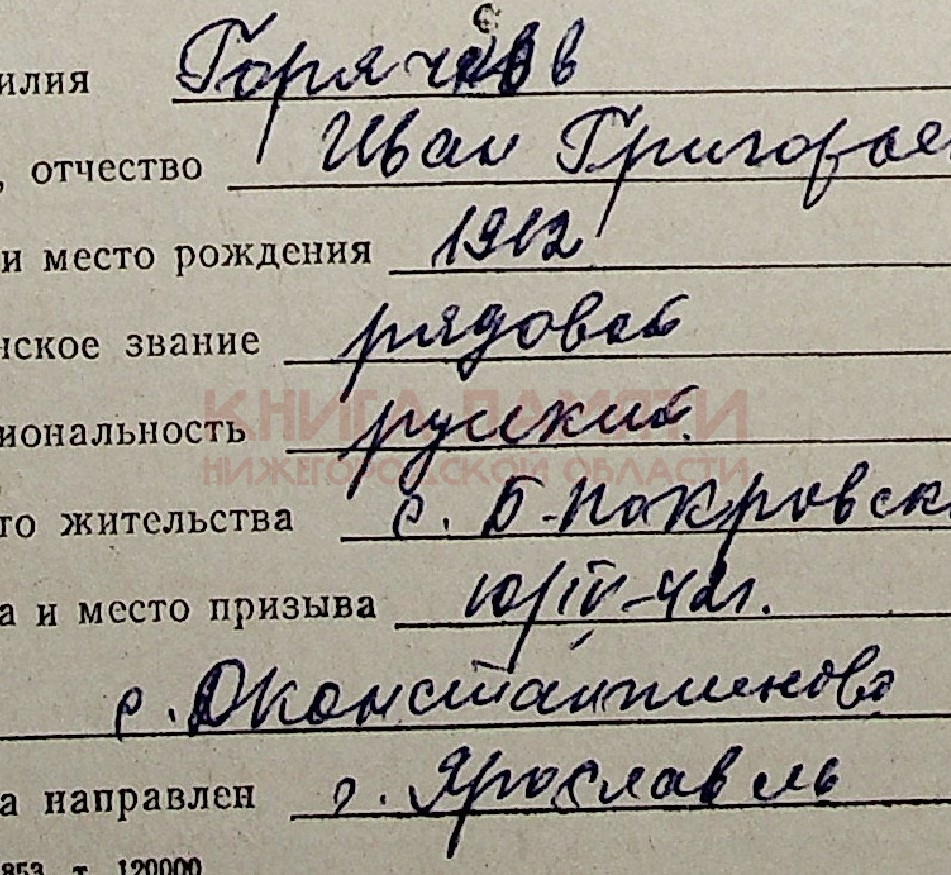 с
илия Горячев
, отчество Иван Григорье
и место рождения 1912
нское звание рядовой
КНИГА ПАМЯТИ
иональность русский.
НИЖЕГОРОДСКОЙ ОБЛАСТИ
го жительства с. Б-Покровск
а и место призыва 10/IV-42г.
с. Дконстантиново
а направлен г. Ярославль
853 т. 120000